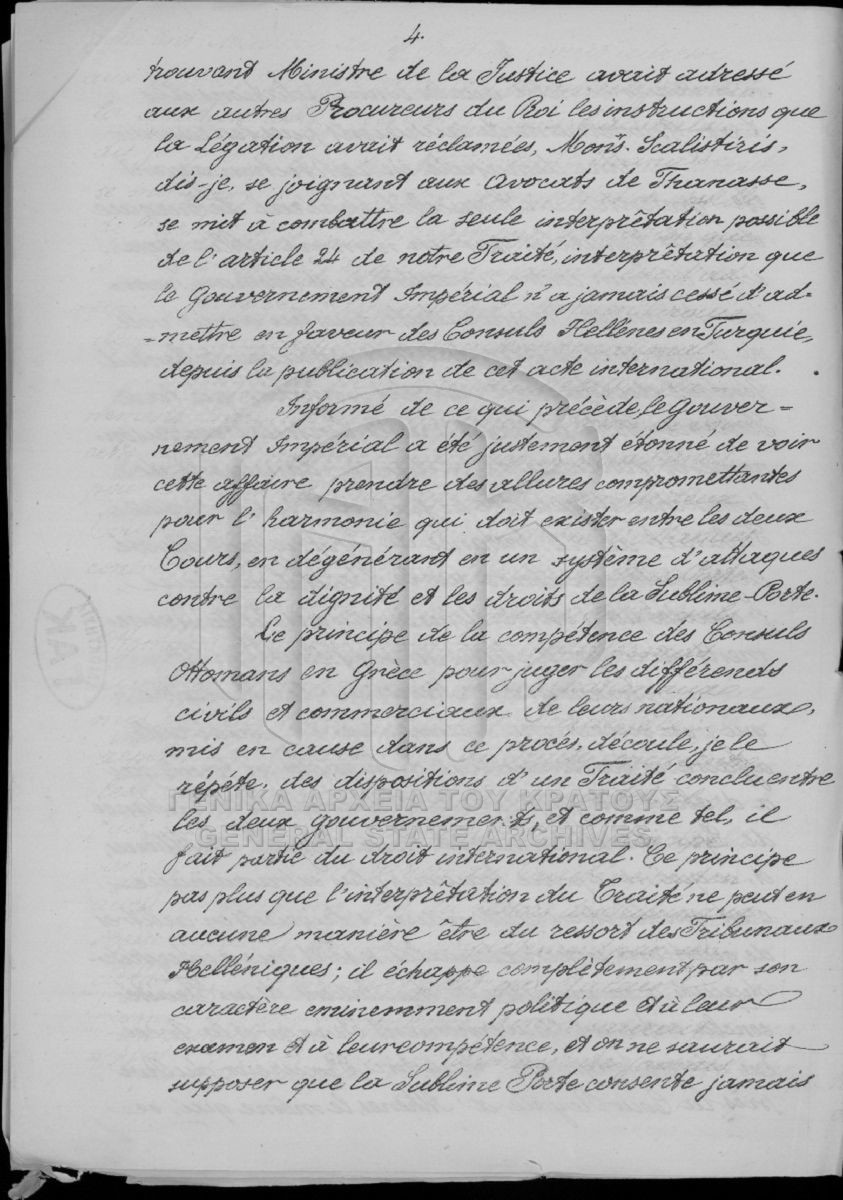 4.
trouvant Ministre de la Justice avait adressé
aux autres Procureurs du Roi les instructions que
la Légation avait réclamées, Monsr. Scalistiris,
dis-je, se joignant aux Avocats de Thanasse,
se mit à combattre la seule interprêtation possible
de l'article 24 de notre Traité, interprêtation que
le Gouvernement Impérial n'a jamais cessé d'ad=
=mettre en faveur des Consuls Hellènes en Turquie,
depuis la publication de cet acte international.
Informé de ce qui précède, le Gouver=
nement Impérial a été justement étonné de voir
cette affaire prendre des allures compromettantes
pour l'harmonie qui doit exister entre les deux
Cours, en dégénérant en un système d'attaques
contre la dignité et les droits de la Sublime-Porte.
Le principe de la compétence des Consuls
Ottomans en Grèce pour juger les différends
civils et commerciaux de leurs nationaux,
mis en cause dans ce procès, découle, je le
répète, des dispositions d'un Traité conclu entre
ΓΕΝΙΚΑ ΑΡΧΕΙΑ ΤΟΥ ΚΡΑΤΟΥΣ
les deux gouvernements, et comme tel, il
GENERAL STATE ARCHIVES
fait partie du droit international. Ce principe
pas plus que l'interprêtation du Traité ne peut en
aucune manière être du ressort des Tribunaux
Helléniques; il échappe complètement par son
caractère eminemment politique et à leur
examen et à leur compétence, et on ne saurait
supposer que la Sublime Porte consente jamais